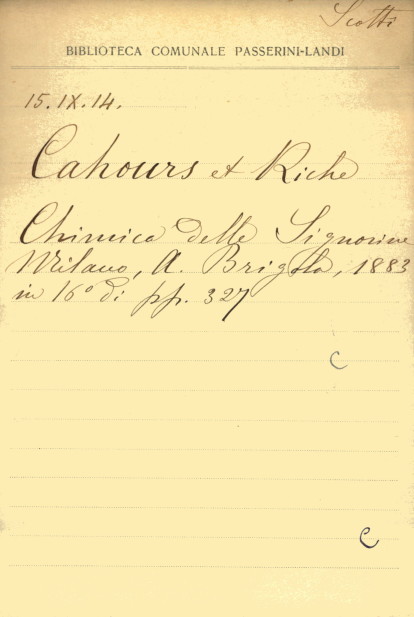 Scotti
BIBLIOTECA COMUNALE PASSERINI-LANDI
15.IX.14.
Cahours et Riche
Chimica delle Signorine
Milano, A. Brigola, 1883
in 16° di pp. 327
C
C